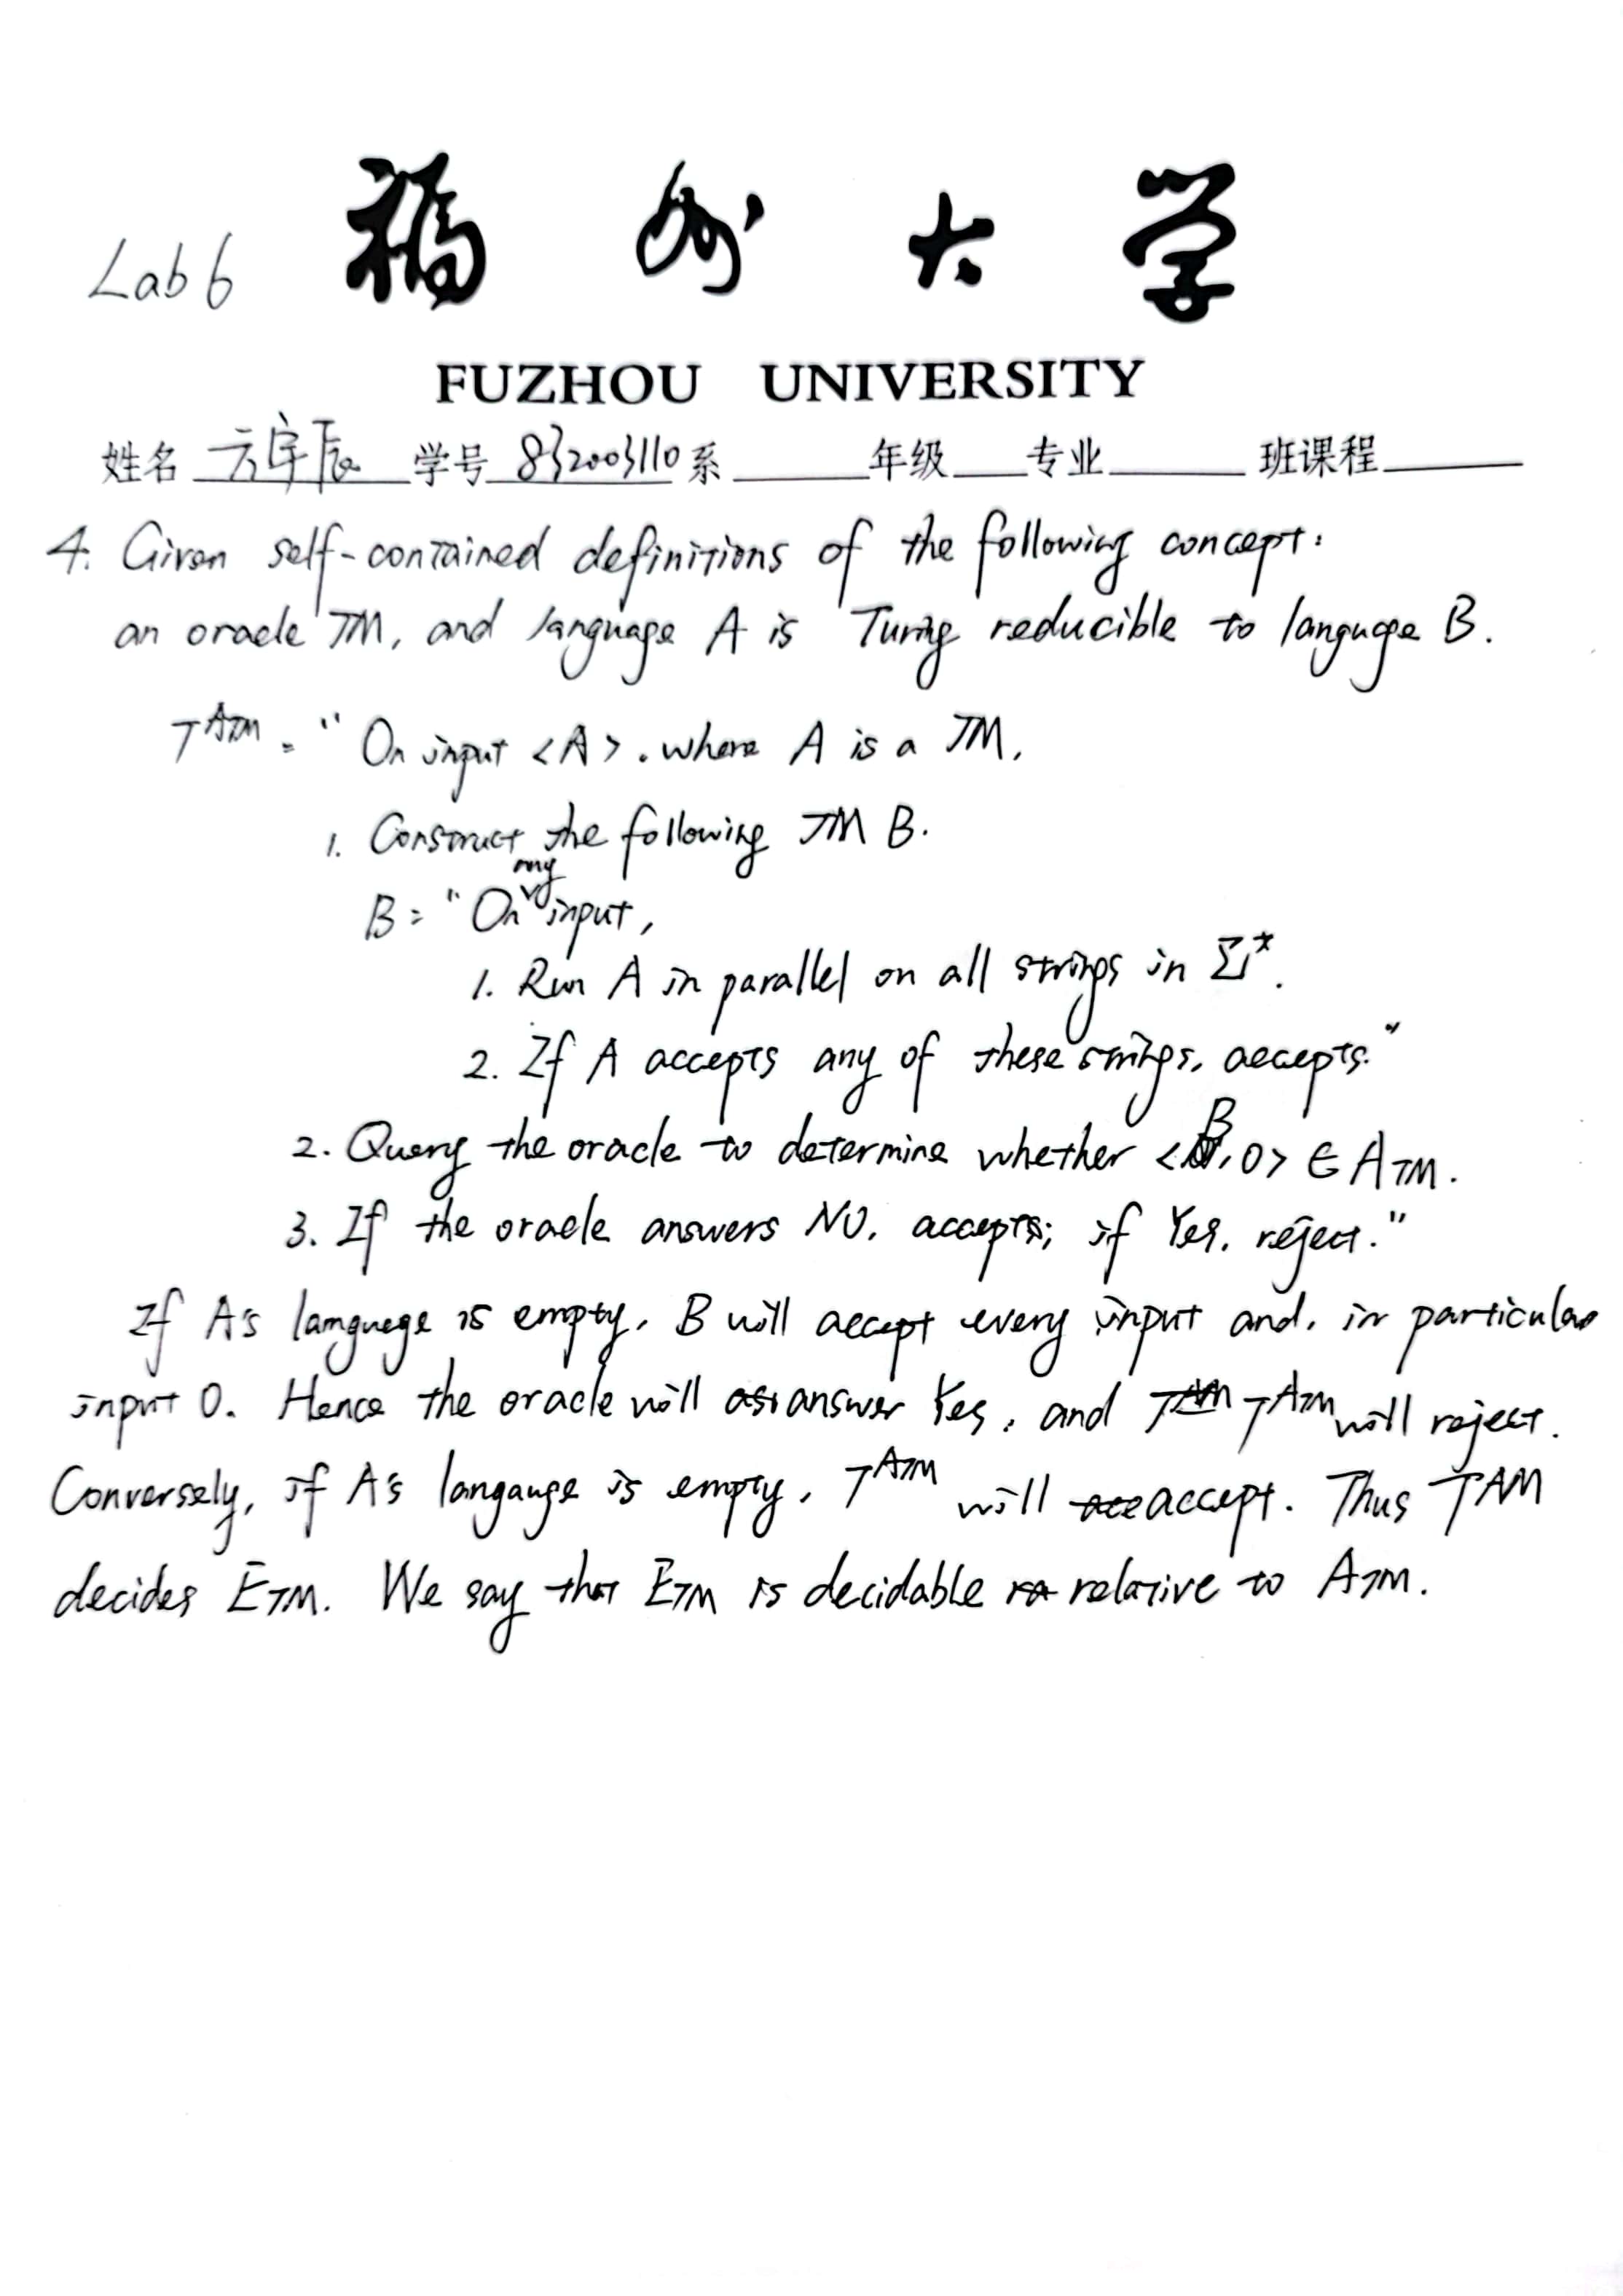 Lab 6 福州大学
FUZHOU UNIVERSITY
姓名 方宇辰 学号 832003110 系 年级 专业 班课程
4. Given self-contained definitions of the following concept:
an oracle TM, and language A is Turing reducible to languge B.
T^ATM = " On input <A>, where A is a TM,
1. Construct the following TM B.
B = " On any input,
1. Run A in parallel on all strings in Σ*.
2. If A accepts any of these strings, accepts."
2. Query the oracle to determine whether <B, 0> ∈ ATM.
3. If the oracle answers NO, accepts; if Yes, reject."
If A's language is empty, B will accept every input and, in particular
input 0. Hence the oracle will answer Yes, and T^ATM will reject.
Conversely, if A's langauge is empty, T^ATM will accept. Thus T^AM
decides ETM. We say that ETM is decidable relative to ATM.